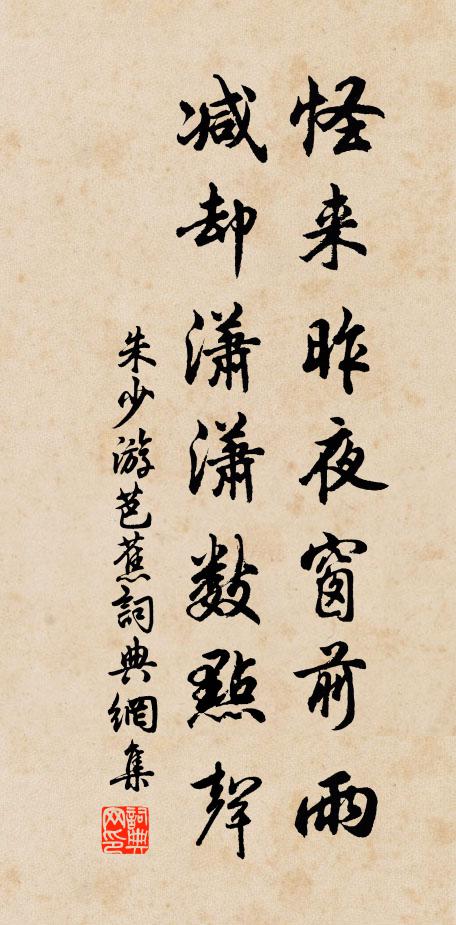 怪来昨夜窗前雨
减却瀟瀟数點聲
朱少游芭蕉詞典網集
詞典网印